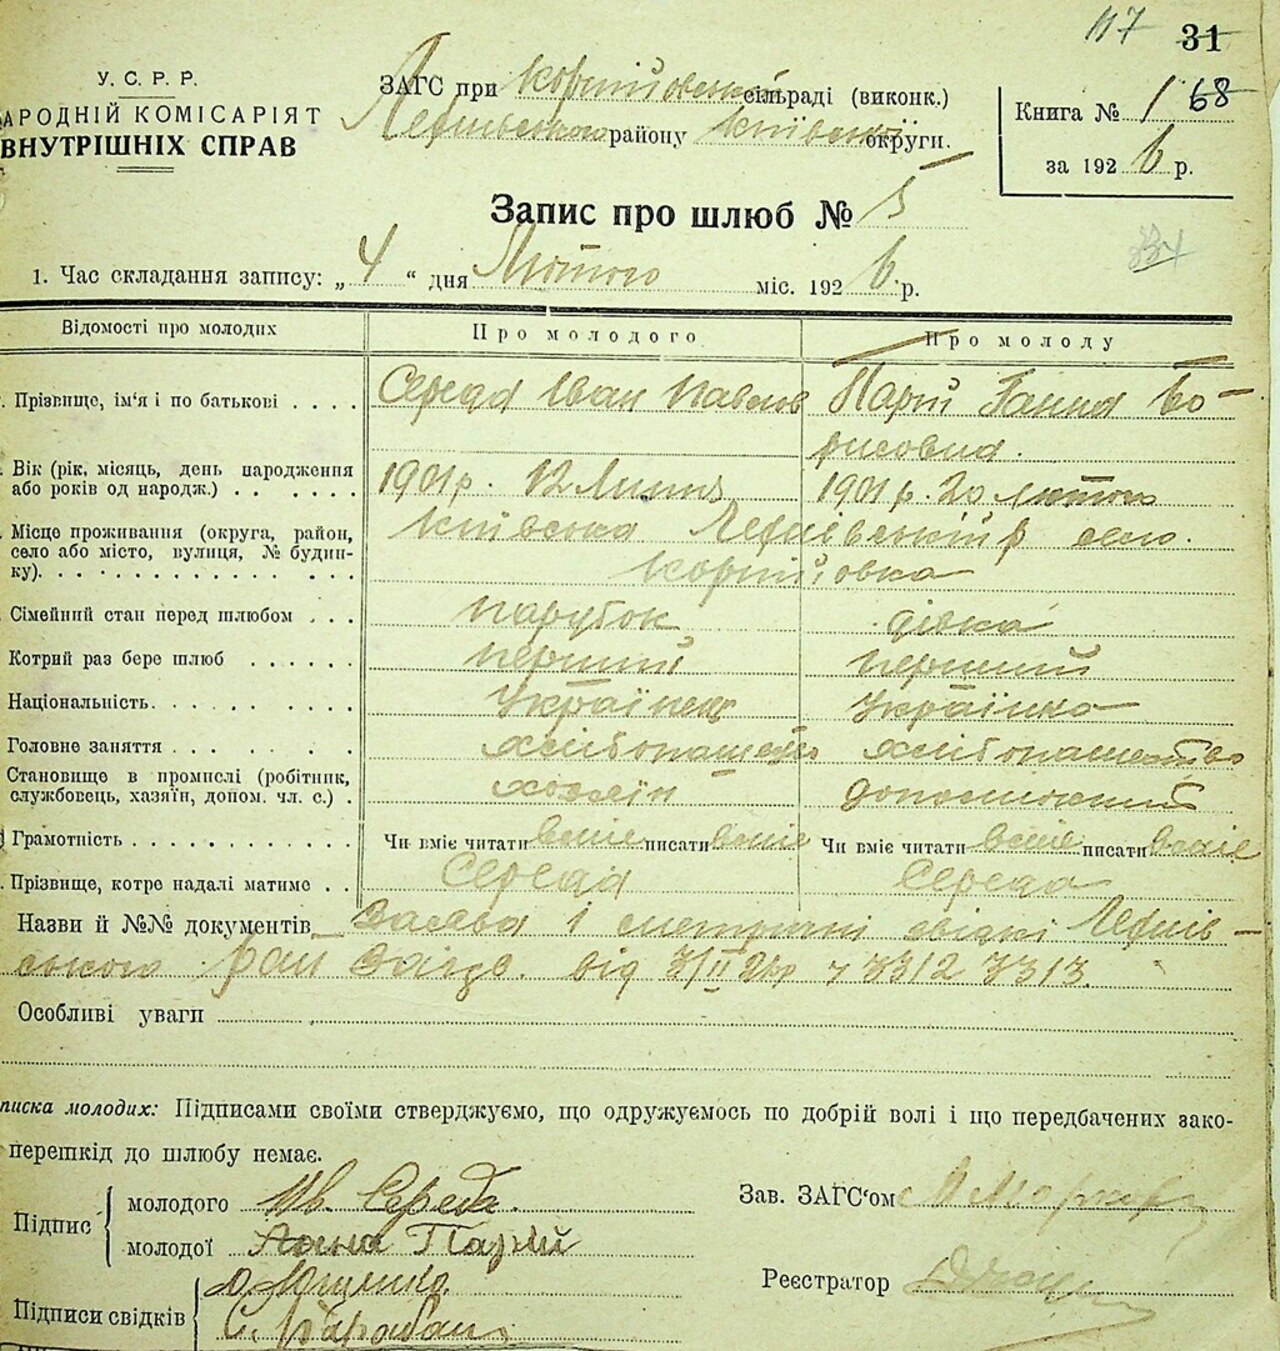 117 31
У. С. Р. Р.
АРОДНІЙ КОМІСАРІЯТ
ВНУТРІШНІХ СПРАВ
ЗАГС при сільраді (виконк.)
району Київської округи.
Книга № 1 68
за 1926 р.
Запис про шлюб № 5
1. Час складання запису: „ 4 “ дня Лютого міс. 1926 р.
Відомості про молодих Про молодого Про молоду
Прізвище, ім'я і по батькові . . . . Середа Іван Павлов Парій Ганна Бо-
рисовна.
Вік (рік, місяць, день народження
або років од народж.) . . . . . . 1901 р. 12 Липня 1901 р. 20 Лютого
Місце проживання (округа, район,
село або місто, вулиця, № будин-
ку). Київська село.
Сімейний стан перед шлюбом . . . парубок дівка
Котрий раз бере шлюб . . . . . . перший перший
Національність. Українець Українка
Головне заняття хлібопашество хлібопашество
Становище в промислі (робітник,
службовець, хазяїн, допом. чл. с.) . хозяїн
Грамотність Чи вміє читати вміє писати вміє Чи вміє читати вміє писати вміє
Прізвище, котре надалі матиме . . Середа Середа
Назви й №№ документів Заява і метричні
ського Рай від 3/II 26р 3312 3313.
Особливі уваги
писка молодих: Підписами своїми стверджуємо, що одружуємось по добрій волі і що передбачених зако-
перешкід до шлюбу немає.
Підпис молодого Ів. Середа. Зав. ЗАГС'ом
молодої Ганна Парій
Реєстратор
Підписи свідків О. Ющенко.
С. Барабаш